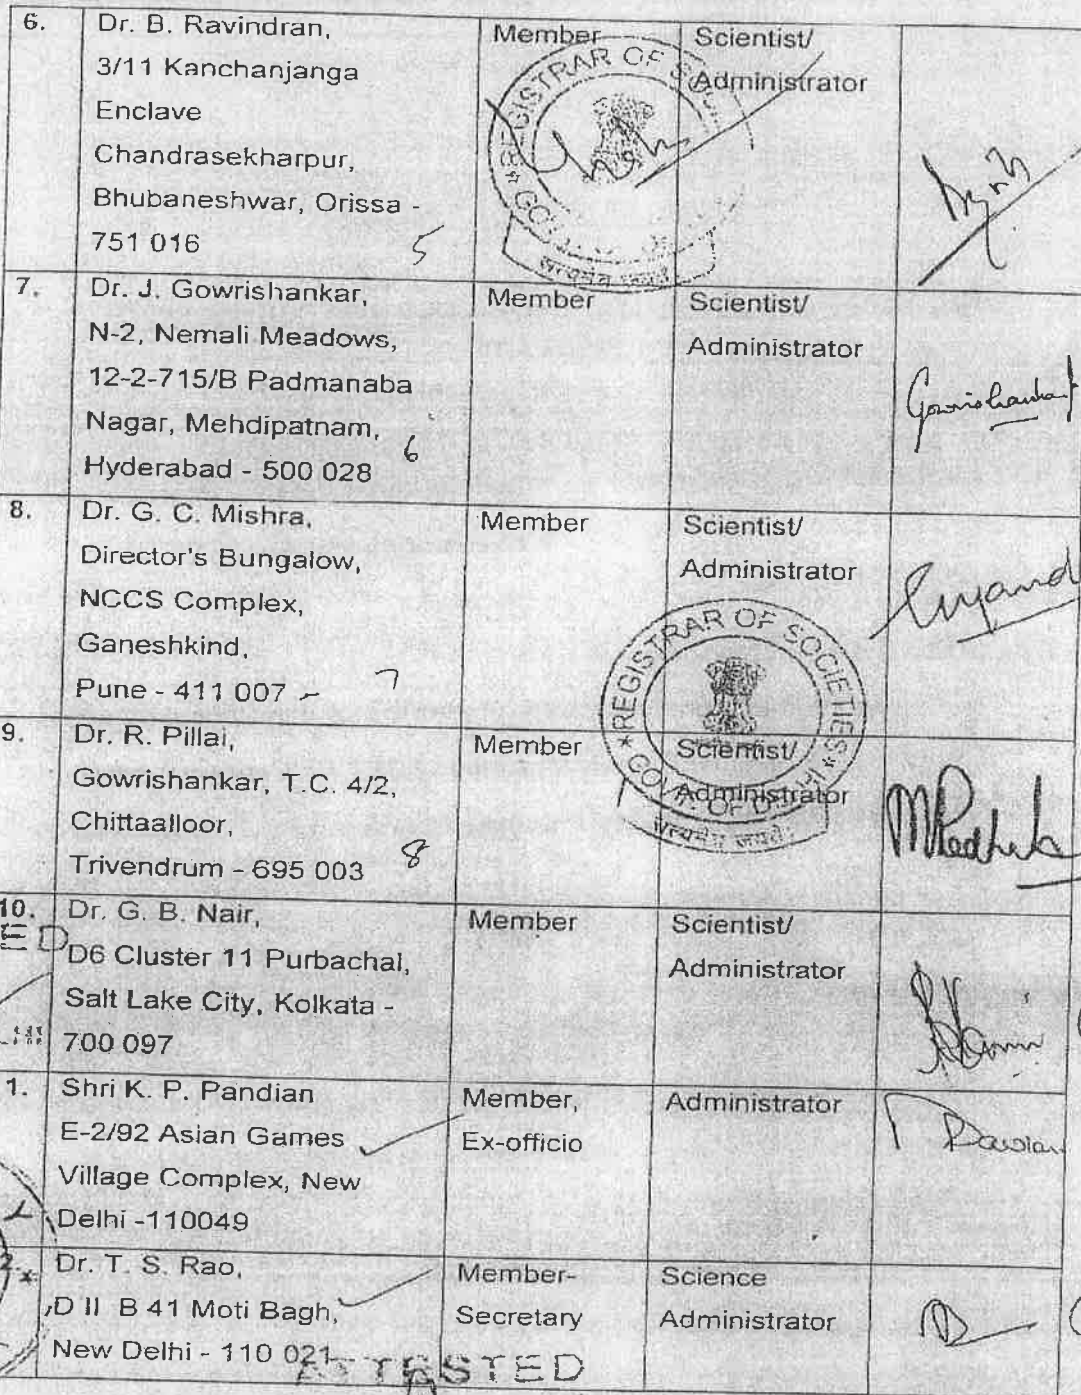 6.
Dr. B. Ravindran,
3/11 Kanchanjanga
Enclave
Chandrasekharpur,
Bhubaneshwar, Orissa -
751 016
5
Member
Scientist/
Administrator
REGISTRAR OF
सत्यमेव जयते
7.
Dr. J. Gowrishankar,
N-2, Nemali Meadows,
12-2-715/B Padmanaba
Nagar, Mehdipatnam,
Hyderabad - 500 028
6
Member
Scientist/
Administrator
Gowrishankar
8.
Dr. G. C. Mishra,
Director's Bungalow,
NCCS Complex,
Ganeshkind,
Pune - 411 007
7
Member
Scientist/
Administrator
*REGISTRAR OF SOCIETIES*
GOVT. OF DELHI
सत्यमेव जयते
9.
Dr. R. Pillai,
Gowrishankar, T.C. 4/2,
Chittaalloor,
Trivendrum - 695 003
8
Member
Scientist/
Administrator
10.
Dr. G. B. Nair,
D6 Cluster 11 Purbachal,
Salt Lake City, Kolkata -
700 097
Member
Scientist/
Administrator
ED
1.
Shri K. P. Pandian
E-2/92 Asian Games
Village Complex, New
Delhi -110049
Member,
Ex-officio
Administrator
2.
Dr. T. S. Rao,
D II B 41 Moti Bagh,
New Delhi - 110 021
Member-
Secretary
Science
Administrator
ATTESTED